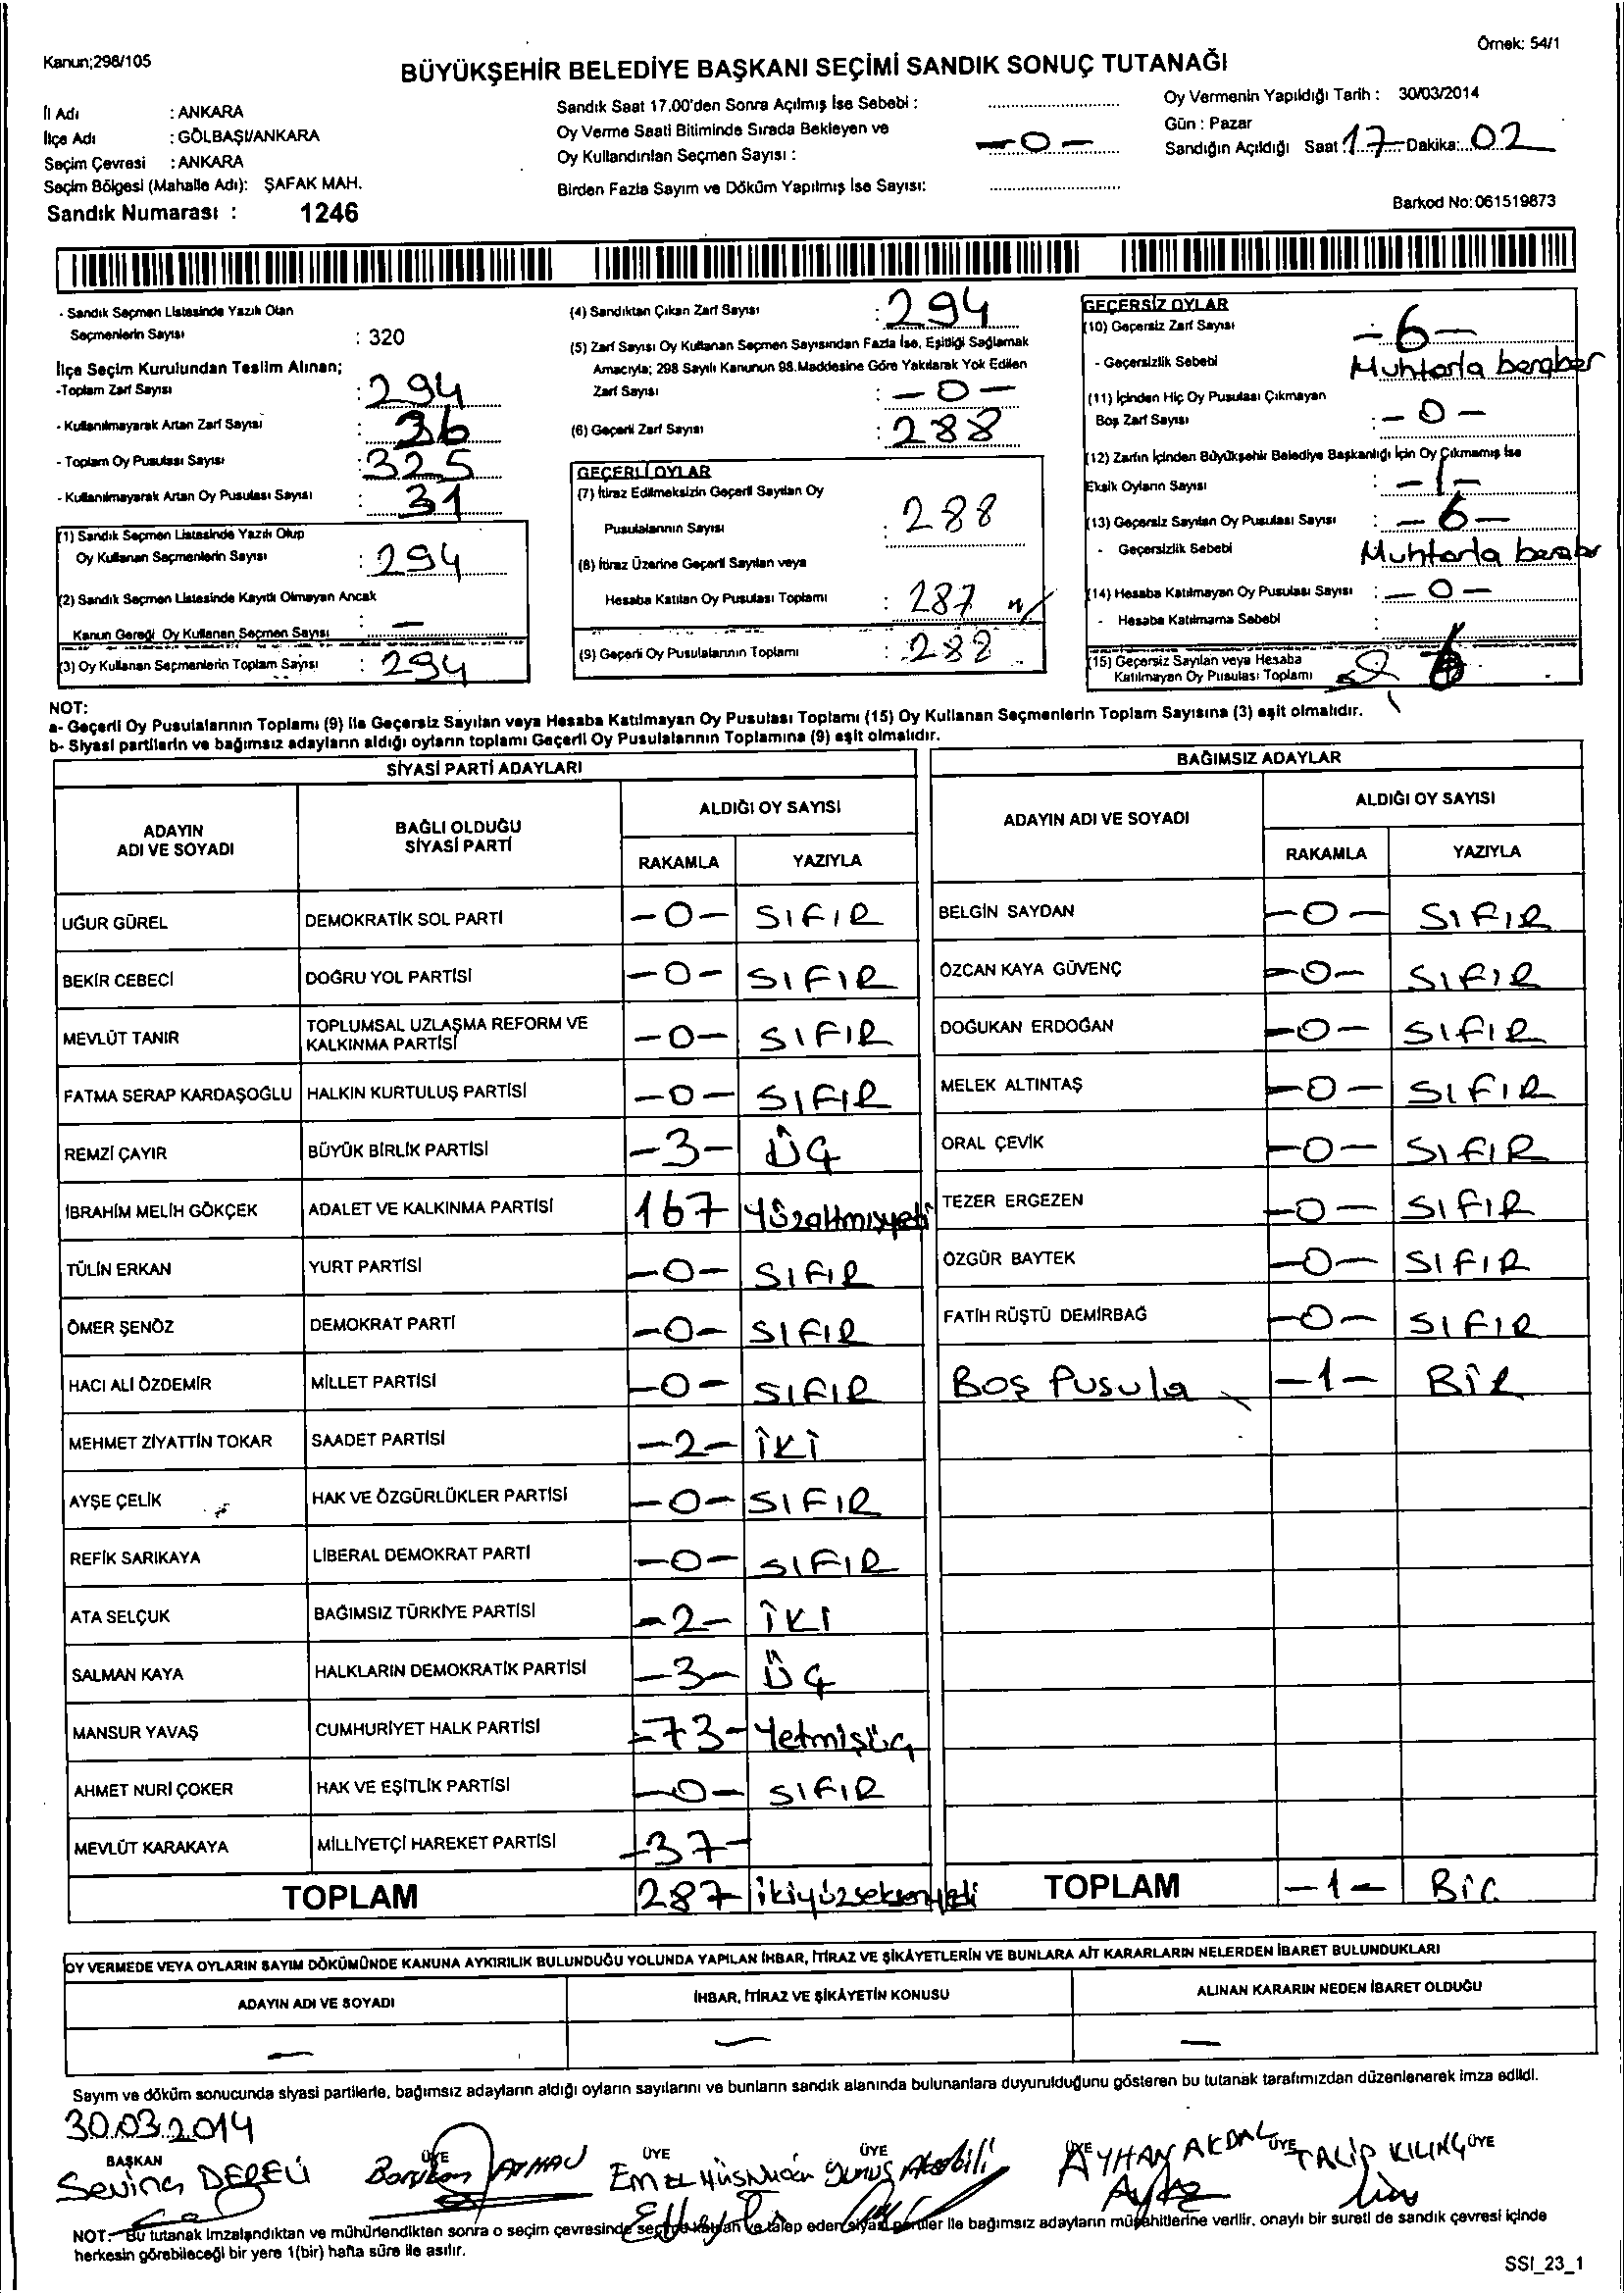 Kanun;298/105
Örnek: 54/1
BÜYÜKŞEHİR BELEDİYE BAŞKANI SEÇİMİ SANDIK SONUÇ TUTANAĞI
İl Adı : ANKARA
İlçe Adı : GÖLBAŞI/ANKARA
Seçim Çevresi : ANKARA
Seçim Bölgesi (Mahalle Adı): ŞAFAK MAH.
Sandık Numarası : 1246
Sandık Saat 17.00'den Sonra Açılmış İse Sebebi :
Oy Verme Saati Bitiminde Sırada Bekleyen ve
Oy Kullandırılan Seçmen Sayısı : -0-
Birden Fazla Sayım ve Döküm Yapılmış İse Sayısı:
Oy Vermenin Yapıldığı Tarih : 30/03/2014
Gün : Pazar
Sandığın Açıldığı Saat 17 Dakika: 02
Barkod No: 061519873
- Sandık Seçmen Listesinde Yazılı Olan
Seçmenlerin Sayısı : 320
İlçe Seçim Kurulundan Teslim Alınan;
-Toplam Zarf Sayısı : 294
- Kullanılmayarak Artan Zarf Sayısı : 36
- Toplam Oy Pusulası Sayısı : 325
- Kullanılmayarak Artan Oy Pusulası Sayısı : 31
(1) Sandık Seçmen Listesinde Yazılı Olup
Oy Kullanan Seçmenlerin Sayısı : 294
(2) Sandık Seçmen Listesinde Kayıtlı Olmayan Ancak
Kanun Gereği Oy Kullanan Seçmen Sayısı : -
(3) Oy Kullanan Seçmenlerin Toplam Sayısı : 294
(4) Sandıktan Çıkan Zarf Sayısı : 294
(5) Zarf Sayısı Oy Kullanan Seçmen Sayısından Fazla İse, Eşitliği Sağlamak
Amacıyla; 298 Sayılı Kanunun 98.Maddesine Göre Yakılarak Yok Edilen
Zarf Sayısı : -0-
(6) Geçerli Zarf Sayısı : 288
GEÇERLİ OYLAR
(7) İtiraz Edilmeksizin Geçerli Sayılan Oy
Pusulalarının Sayısı : 288
(8) İtiraz Üzerine Geçerli Sayılan veya
Hesaba Katılan Oy Pusulası Toplamı : 287
(9) Geçerli Oy Pusulalarının Toplamı : 288
GEÇERSİZ OYLAR
(10) Geçersiz Zarf Sayısı -6-
- Geçersizlik Sebebi Muhtarla beraber
(11) İçinden Hiç Oy Pusulası Çıkmayan
Boş Zarf Sayısı : -0-
(12) Zarfın İçinden Büyükşehir Belediye Başkanlığı İçin Oy Çıkmamış İse
Eksik Oyların Sayısı : -1-
(13) Geçersiz Sayılan Oy Pusulası Sayısı : -6-
- Geçersizlik Sebebi Muhtarla beraber
(14) Hesaba Katılmayan Oy Pusulası Sayısı : -0-
- Hesaba Katılmama Sebebi :
(15) Geçersiz Sayılan veya Hesaba
Katılmayan Oy Pusulası Toplamı 6
NOT:
a- Geçerli Oy Pusulalarının Toplamı (9) ile Geçersiz Sayılan veya Hesaba Katılmayan Oy Pusulası Toplamı (15) Oy Kullanan Seçmenlerin Toplam Sayısına (3) eşit olmalıdır.
b- Siyasi partilerin ve bağımsız adayların aldığı oyların toplamı Geçerli Oy Pusulalarının Toplamına (9) eşit olmalıdır.
SİYASİ PARTİ ADAYLARI
ADAYIN ADI VE SOYADI
BAĞLI OLDUĞU SİYASİ PARTİ
ALDIĞI OY SAYISI
RAKAMLA YAZIYLA
UĞUR GÜREL DEMOKRATİK SOL PARTİ -0- SIFIR
BEKİR CEBECİ DOĞRU YOL PARTİSİ -0- SIFIR
MEVLÜT TANIR TOPLUMSAL UZLAŞMA REFORM VE KALKINMA PARTİSİ -0- SIFIR
FATMA SERAP KARDAŞOĞLU HALKIN KURTULUŞ PARTİSİ -0- SIFIR
REMZİ ÇAYIR BÜYÜK BİRLİK PARTİSİ -3- ÜÇ
İBRAHİM MELİH GÖKÇEK ADALET VE KALKINMA PARTİSİ 167 Yüzaltmışyedi
TÜLİN ERKAN YURT PARTİSİ -0- SIFIR
ÖMER ŞENÖZ DEMOKRAT PARTİ -0- SIFIR
HACI ALİ ÖZDEMİR MİLLET PARTİSİ -0- SIFIR
MEHMET ZİYATTİN TOKAR SAADET PARTİSİ -2- İKİ
AYŞE ÇELİK HAK VE ÖZGÜRLÜKLER PARTİSİ -0- SIFIR
REFİK SARIKAYA LİBERAL DEMOKRAT PARTİ -0- SIFIR
ATA SELÇUK BAĞIMSIZ TÜRKİYE PARTİSİ -2- İKİ
SALMAN KAYA HALKLARIN DEMOKRATİK PARTİSİ -3- ÜÇ
MANSUR YAVAŞ CUMHURİYET HALK PARTİSİ -73- Yetmişüç
AHMET NURİ ÇOKER HAK VE EŞİTLİK PARTİSİ -0- SIFIR
MEVLÜT KARAKAYA MİLLİYETÇİ HAREKET PARTİSİ -37-
TOPLAM 287 ikiyüzseksenyedi
BAĞIMSIZ ADAYLAR
ADAYIN ADI VE SOYADI
ALDIĞI OY SAYISI
RAKAMLA YAZIYLA
BELGİN SAYDAN -0- SIFIR
ÖZCAN KAYA GÜVENÇ -0- SIFIR
DOĞUKAN ERDOĞAN -0- SIFIR
MELEK ALTINTAŞ -0- SIFIR
ORAL ÇEVİK -0- SIFIR
TEZER ERGEZEN -0- SIFIR
ÖZGÜR BAYTEK -0- SIFIR
FATİH RÜŞTÜ DEMİRBAĞ -0- SIFIR
Boş Pusula -1- BİR
TOPLAM -1- Bir
OY VERMEDE VEYA OYLARIN SAYIM DÖKÜMÜNDE KANUNA AYKIRILIK BULUNDUĞU YOLUNDA YAPILAN İHBAR, İTİRAZ VE ŞİKÂYETLERİN VE BUNLARA AİT KARARLARIN NELERDEN İBARET BULUNDUKLARI
ADAYIN ADI VE SOYADI İHBAR, İTİRAZ VE ŞİKÂYETİN KONUSU ALINAN KARARIN NEDEN İBARET OLDUĞU
- - -
Sayım ve döküm sonucunda siyasi partilerle, bağımsız adayların aldığı oyların sayılarını ve bunların sandık alanında bulunanlara duyurulduğunu gösteren bu tutanak tarafımızdan düzenlenerek imza edildi.
30.03.2014
BAŞKAN ÜYE ÜYE ÜYE ÜYE ÜYE ÜYE
Sevinç DERELİ
AYHAN AKDAL TALİP KILINÇ
NOT:- Bu tutanak imzalandıktan ve mühürlendikten sonra o seçim çevresinde seçime katılan ve talep eden siyasi partiler ile bağımsız adayların müşahitlerine verilir, onaylı bir sureti de sandık çevresi içinde
herkesin görebileceği bir yere 1(bir) hafta süre ile asılır.
SSI_23_1